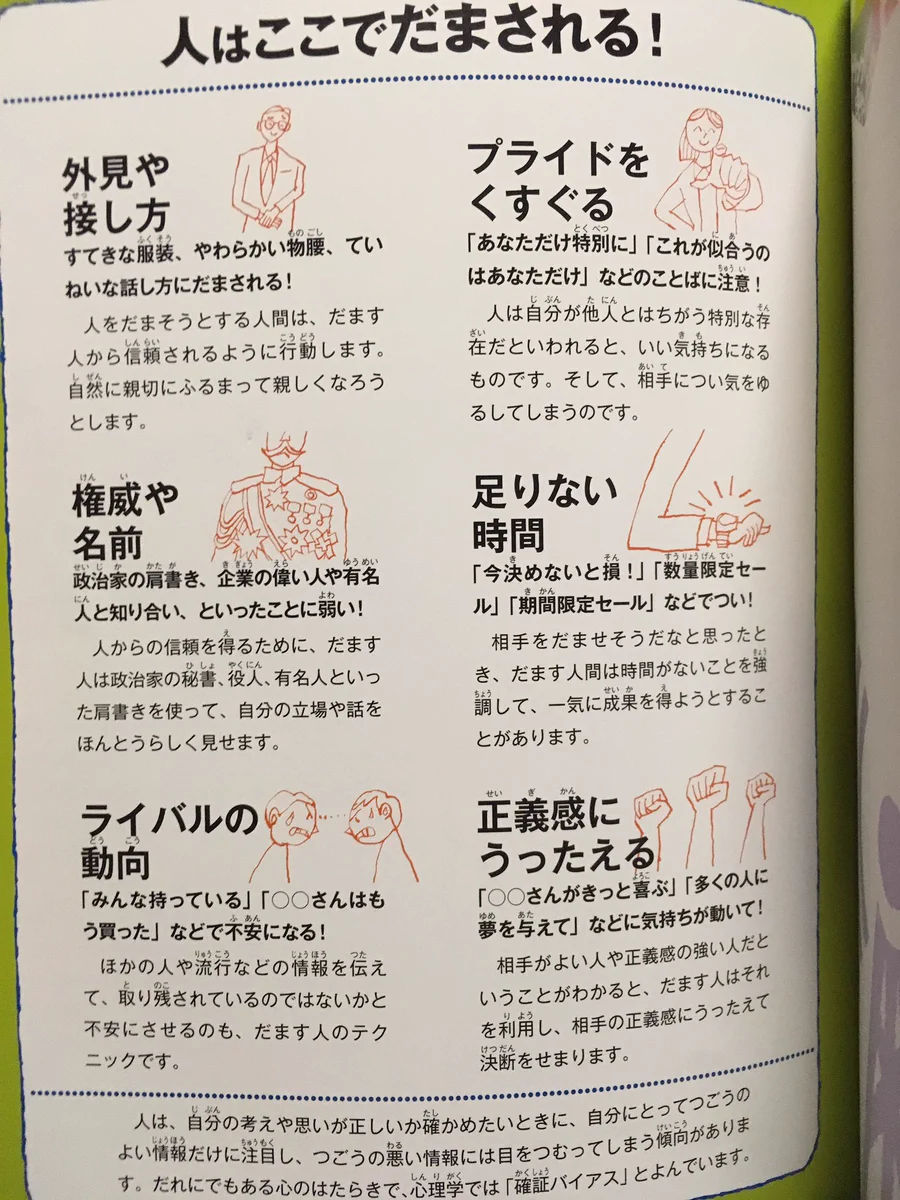 人はここでだまされる！
外見や
接し方
すてきな服装、やわらかい物腰、てい
ねいな話し方にだまされる！
人をだまそうとする人間は、だます
人から信頼されるように行動します。
自然に親切にふるまって親しくなろう
とします。
権威や
名前
政治家の肩書き、企業の偉い人や有名
人と知り合い、といったことに弱い！
人からの信頼を得るために、だます
人は政治家の秘書、役人、有名人といっ
た肩書きを使って、自分の立場や話を
ほんとうらしく見せます。
ライバルの
動向
「みんな持っている」「○○さんはも
う買った」などで不安になる！
ほかの人や流行などの情報を伝え
て、取り残されているのではないかと
不安にさせるのも、だます人のテク
ニックです。
プライドを
くすぐる
「あなただけ特別に」「これが似合うの
はあなただけ」などのことばに注意！
人は自分が他人とはちがう特別な存
在だといわれると、いい気持ちになる
ものです。そして、相手につい気をゆ
るしてしまうのです。
足りない
時間
「今決めないと損！」「数量限定セー
ル」「期間限定セール」などでつい！
相手をだませそうだなと思ったと
き、だます人間は時間がないことを強
調して、一気に成果を得ようとするこ
とがあります。
正義感に
うったえる
「○○さんがきっと喜ぶ」「多くの人に
夢を与えて」などに気持ちが動いて！
相手がよい人や正義感の強い人だと
いうことがわかると、だます人はそれ
を利用し、相手の正義感にうったえて
決断をせまります。
人は、自分の考えや思いが正しいか確かめたいときに、自分にとってつごうの
よい情報だけに注目し、つごうの悪い情報には目をつむってしまう傾向がありま
す。だれにでもある心のはたらきで、心理学では「確証バイアス」とよんでいます。